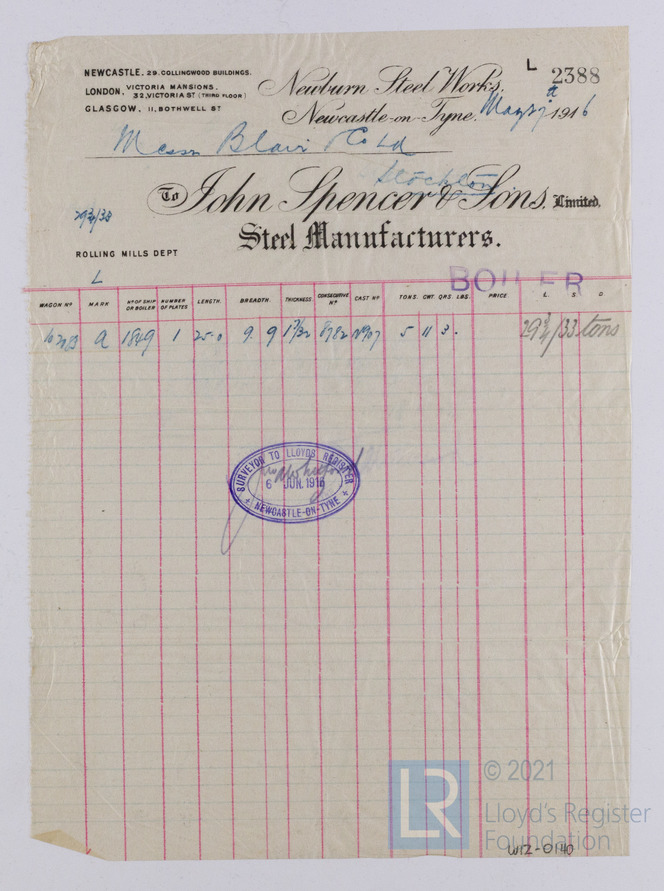 NEWCASTLE. 29. COLLINGWOOD BUILDINGS.
LONDON, VICTORIA MANSIONS. 32, VICTORIA ST (THIRD FLOOR)
GLASGOW, 11, BOTHWELL ST
L 2388
Newburn Steel Works.
Newcastle-on-Tyne. May 1916
Messrs Blair & Co Ld
Stockton
To John Spencer & Sons. Limited.
Steel Manufacturers.
29¾/33
ROLLING MILLS DEPT
L
BOILER
WAGON Nº MARK Nº OF SHIP OR BOILER NUMBER OF PLATES LENGTH. BREADTH. THICKNESS. CONSECUTIVE Nº CAST Nº TONS. CWT. QRS. LBS. PRICE L. S. D.
a 1849 1 25.0 9. 9 1 7/32 8982 5 11 3 . 29¾/33 tons
SURVEYOR TO LLOYDS REGISTER
6 JUN. 1916
NEWCASTLE-ON-TYNE
LR
© 2021
Lloyd's Register
Foundation
W12-0140